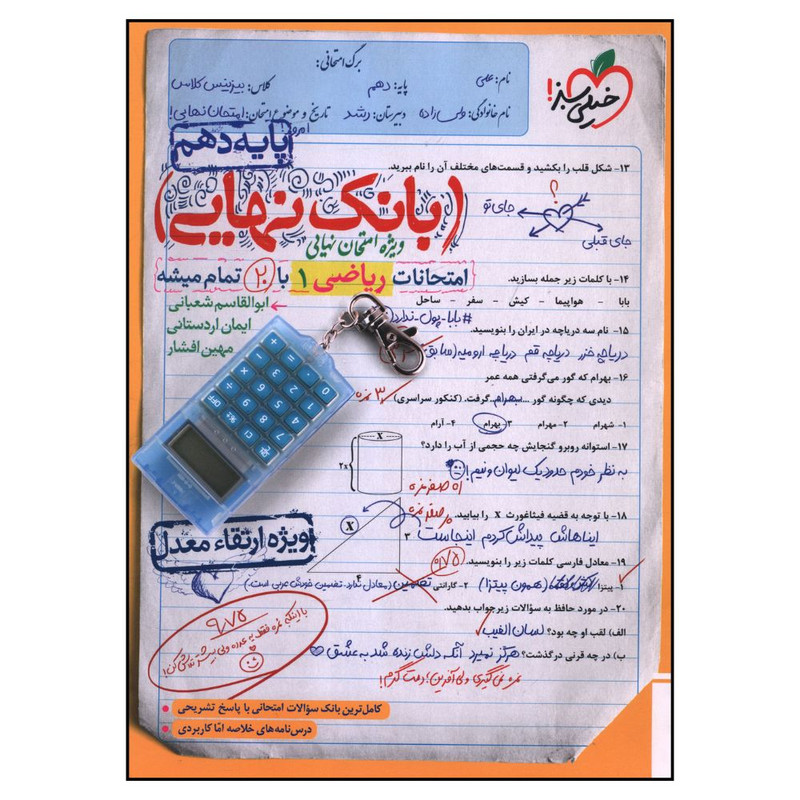 برگ امتحانی:
نام: علی
پایه: دهم
کلاس: بیزنیس کلاس
نام خانوادگی: ولی زاده
دبیرستان: رشد
تاریخ و موضوع امتحان: امتحان نهایی!
امروز
خیلی سبز!
پایه دهم
۱۳- شکل قلب را بکشید و قسمت‌های مختلف آن را نام ببرید.
(بانک نهایی)
ویژه امتحان نهایی
؟
جای تو
جای قبلی
امتحانات ریاضی ۱ با ۲۰ تمام میشه
ابوالقاسم شعبانی
ایمان اردستانی
مهین افشار
۱۴- با کلمات زیر جمله بسازید.
بابا - هواپیما - کیش - سفر - ساحل
#بابا-پول-ندارد
۱۵- نام سه دریاچه در ایران را بنویسید.
دریاچه خزر دریاچه قم دریاچه ارومیه (سابق)
۱۶- بهرام که گور می‌گرفتی همه عمر
دیدی که چگونه گور ...بهرام... گرفت. (کنکور سراسری)
۳ نمره
۱- شهرام ۲- مهرام ۳- بهرام ۴- آرام
۱۷- استوانه روبرو گنجایش چه حجمی از آب را دارد؟
x
2x
به نظر خودم حدود یک لیوان و نیم!
۵۱ صفر نمره
۱۸- با توجه به قضیه فیثاغورث x را بیابید.
صفر نمره
ایناهاش پیداش کردم اینجاست
x
۳
۴
ویژه ارتقاء معدل
۱۹- معادل فارسی کلمات زیر را بنویسید.
۰/۷۵
۱- پیتزا (همون پیتزا) ۲- گارانتی تضمین (معادل ندارد. تضمین خودش عربی است.)
۲۰- در مورد حافظ به سؤالات زیر جواب بدهید.
الف) لقب او چه بود؟ لسان الغیب
ب) در چه قرنی درگذشت؟ هرگز نمیرد آنکه دلش زنده شد به عشق
نمره نمی‌گیری ولی آفرین! دمت گرم!
۹/۷۵
با اینکه نمره فقط یه عدده ولی بیشتر تلاش کن!
کامل‌ترین بانک سؤالات امتحانی با پاسخ تشریحی
درس‌نامه‌های خلاصه امّا کاربردی